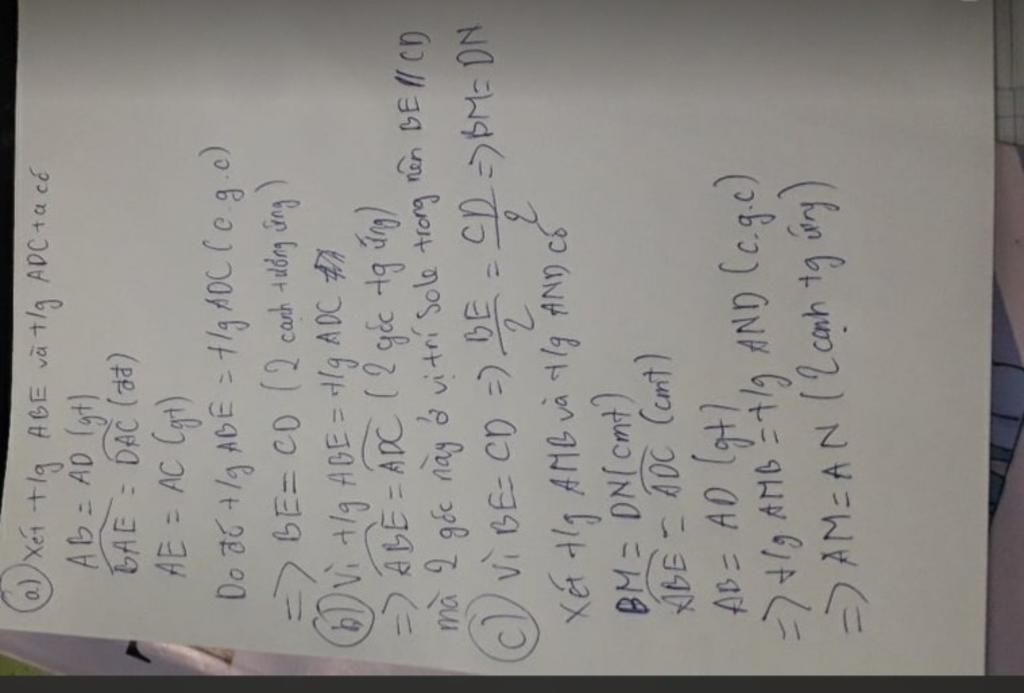 a) Xét t/g ABE và t/g ADC ta có
AB = AD (gt)
BAE = DAC (đđ)
AE = AC (gt)
Do đó t/g ABE = t/g ADC (c.g.c)
=> BE = CD (2 cạnh tương ứng)
b) Vì t/g ABE = t/g ADC
=> ABE = ADC (2 góc tg ứng)
mà 2 góc này ở vị trí Sole trong nên BE // CD
c) Vì BE = CD => BE/2 = CD/2 => BM = DN
Xét t/g AMB và t/g AND có
BM = DN (cmt)
ABE = ADC (cmt)
AB = AD (gt)
=> t/g AMB = t/g AND (c.g.c)
=> AM = AN (2 cạnh tg ứng)